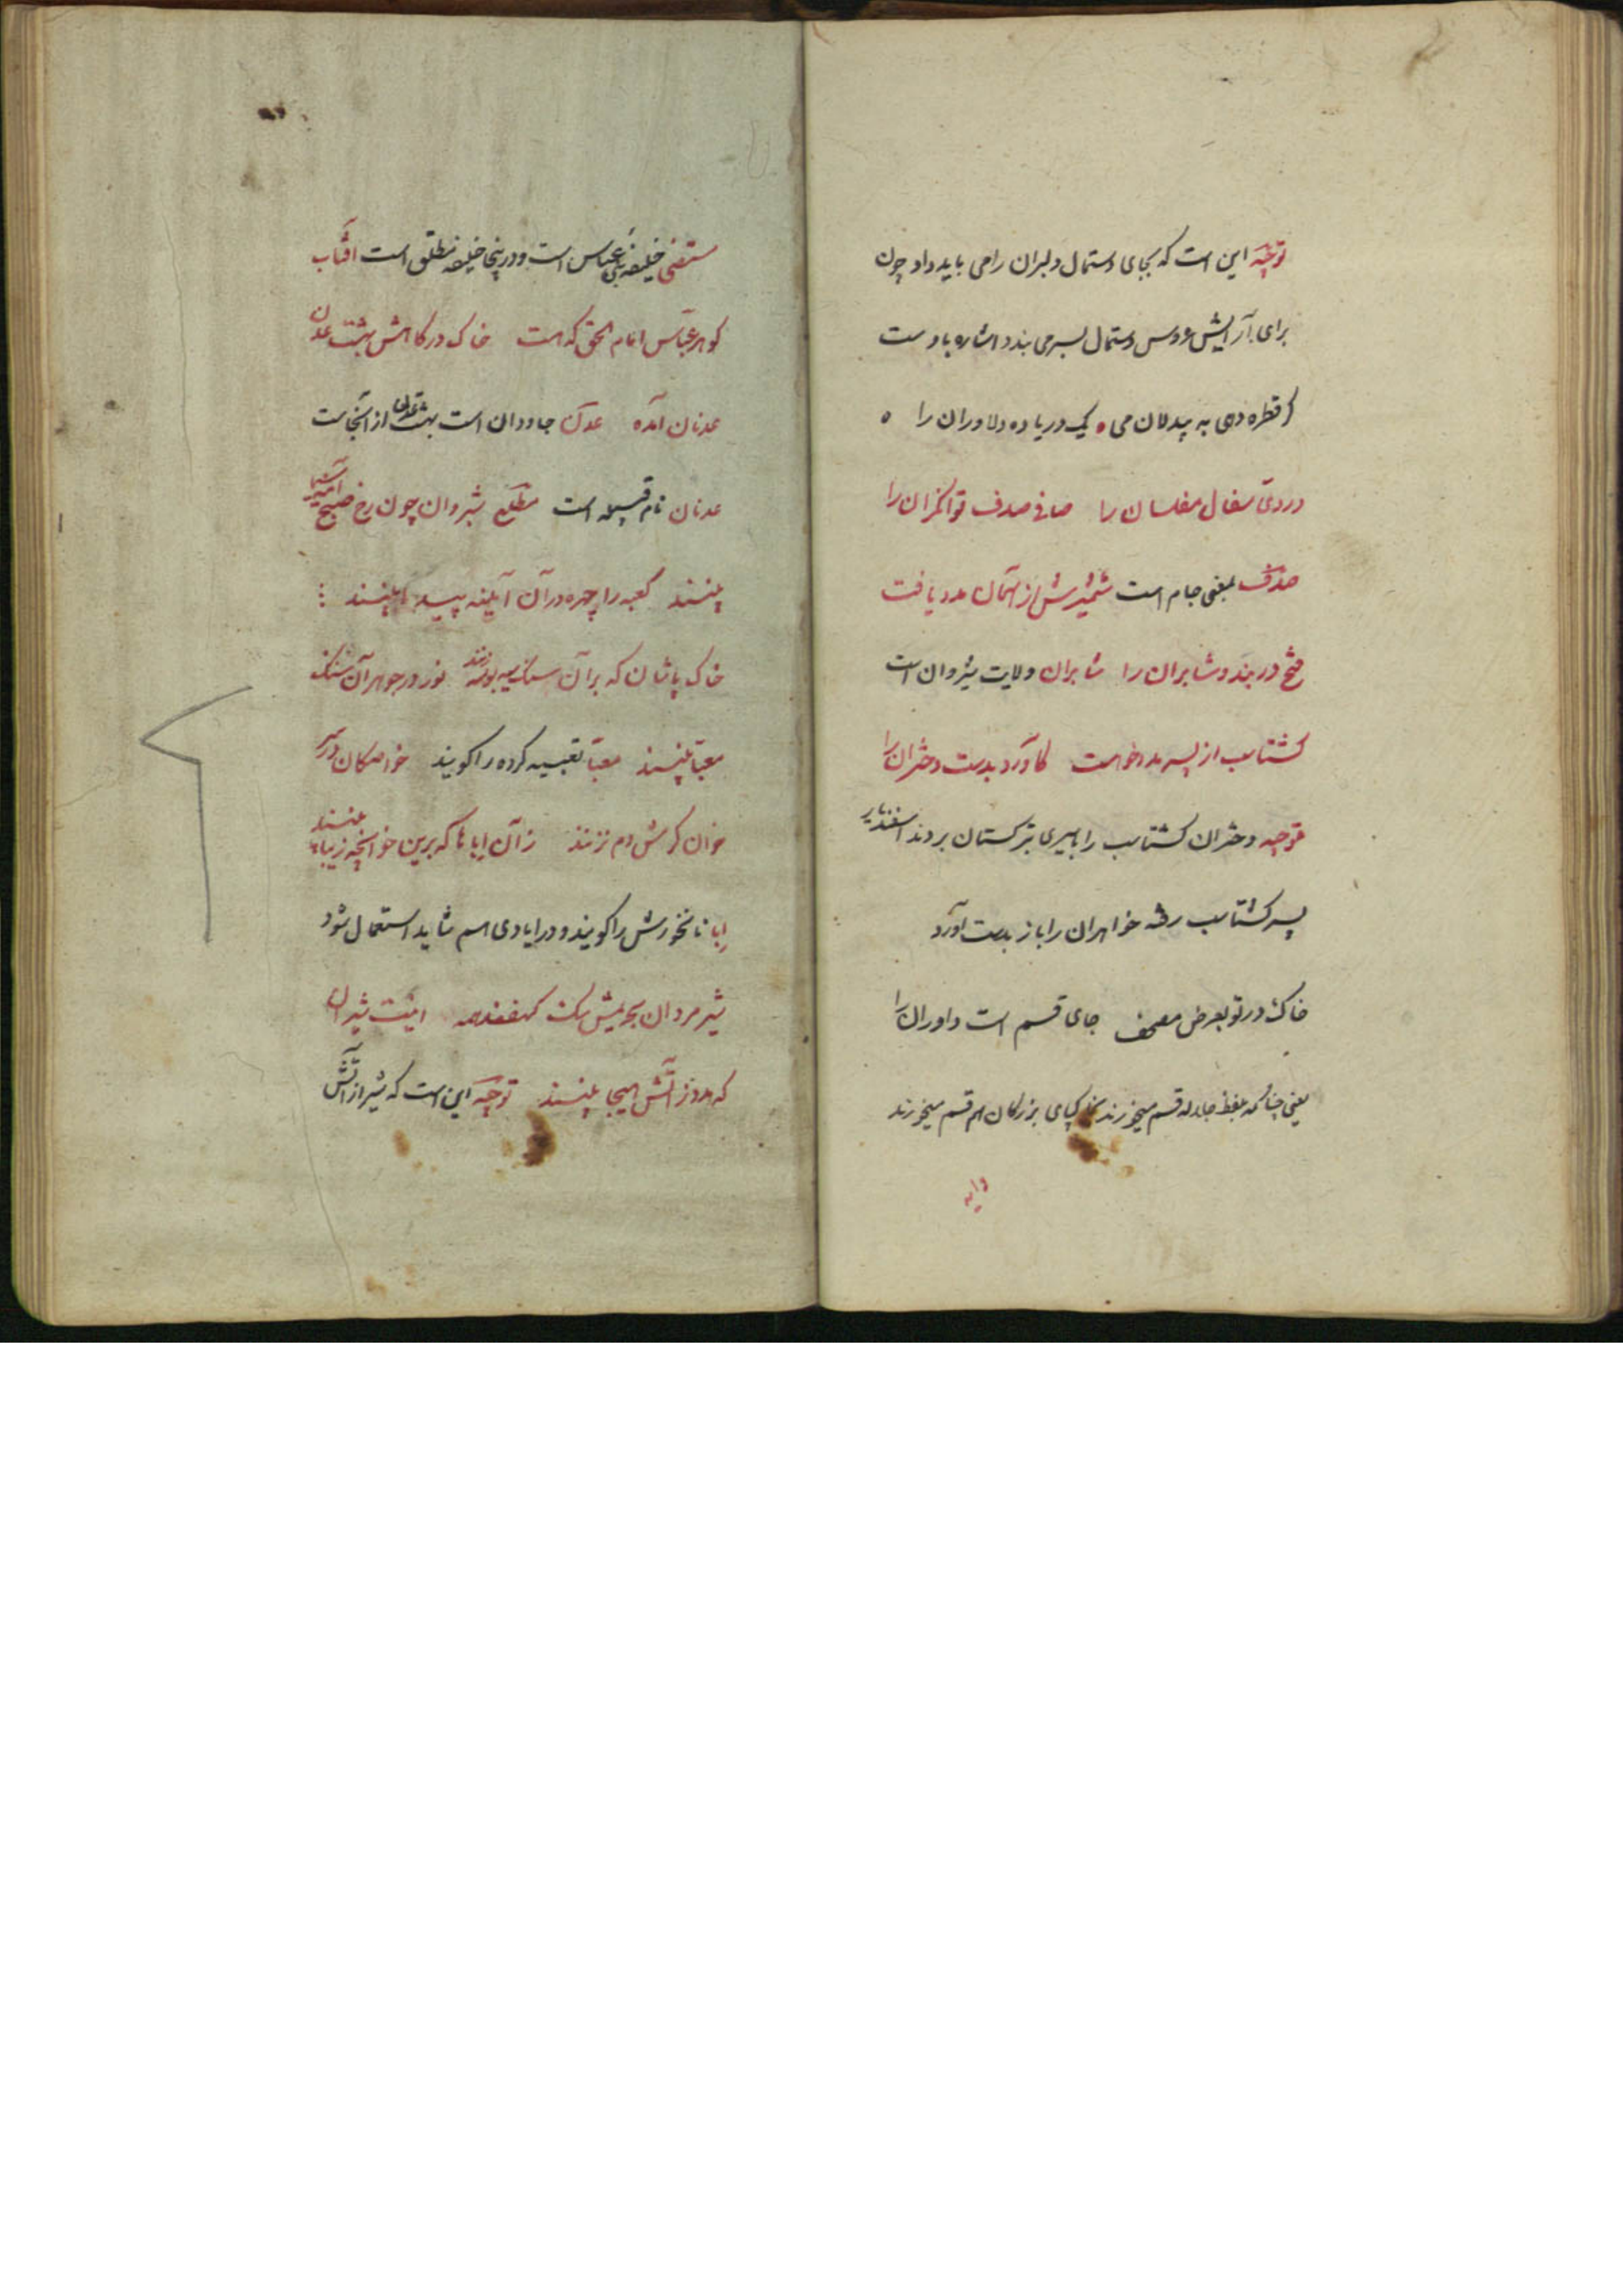 توجیه این است که بجای دستمال دلبران را می باید داد چون
برای آرایش عروس دستمال بسر می بندد اشاره باوست
گر قطره دهی به بیدلان می یک دریا ده دلاوران را
دردی سفال مفلسان را صافی صدف توانگران را
صدف بمعنی جام است شمشیرش از آسمان مدد یافت
فتح دربند و شابران را شابران ولایت شیروان است
گشتاسب از پسر مدد خواست کاورد بدست دختران را
توجیه دختران گشتاسب را باسیری بترکستان بردند اسفندیار
پسر گشتاسب رفته خواهران را باز بدست آورد
خاک در تو بعرض مصحف جای قسم است داوران را
یعنی چنانکه بلفظ جلاله قسم میخورند بخاکپای بزرگان هم قسم میخورند
مستضی خلیفه بنی عباس است و در اینجا خلیفه مطلق است آفتاب
گوهر عباس امام الحق که هست خاک درگاهش بهشت عدن
عدنان آمده عدن جاودان است بهشت عدن از آنجاست
عدنان نام قبیله است مطلع شبروان چون رخ صبح آینه سیما
بینند کعبه را چهره در آن آینه پیدا بینند
خاک پاشان که بر آن سنگ سیه بوسه زنند نور در جوهر آن سنگ
معبا بینند معبا تعبیه کرده را گویند خواهگان در سر
خوان کرمش دم نزنند زآن اباها که برین خوانچه زیبا بینند
ابا نانخورش را گویند و در ایادی هم شاید استعمال شود
شیر مردان بحریمش سگ کهفند همه اینت شیران
که مدد ز آتش هیجا بینند توجیه این است که شیر از آتش